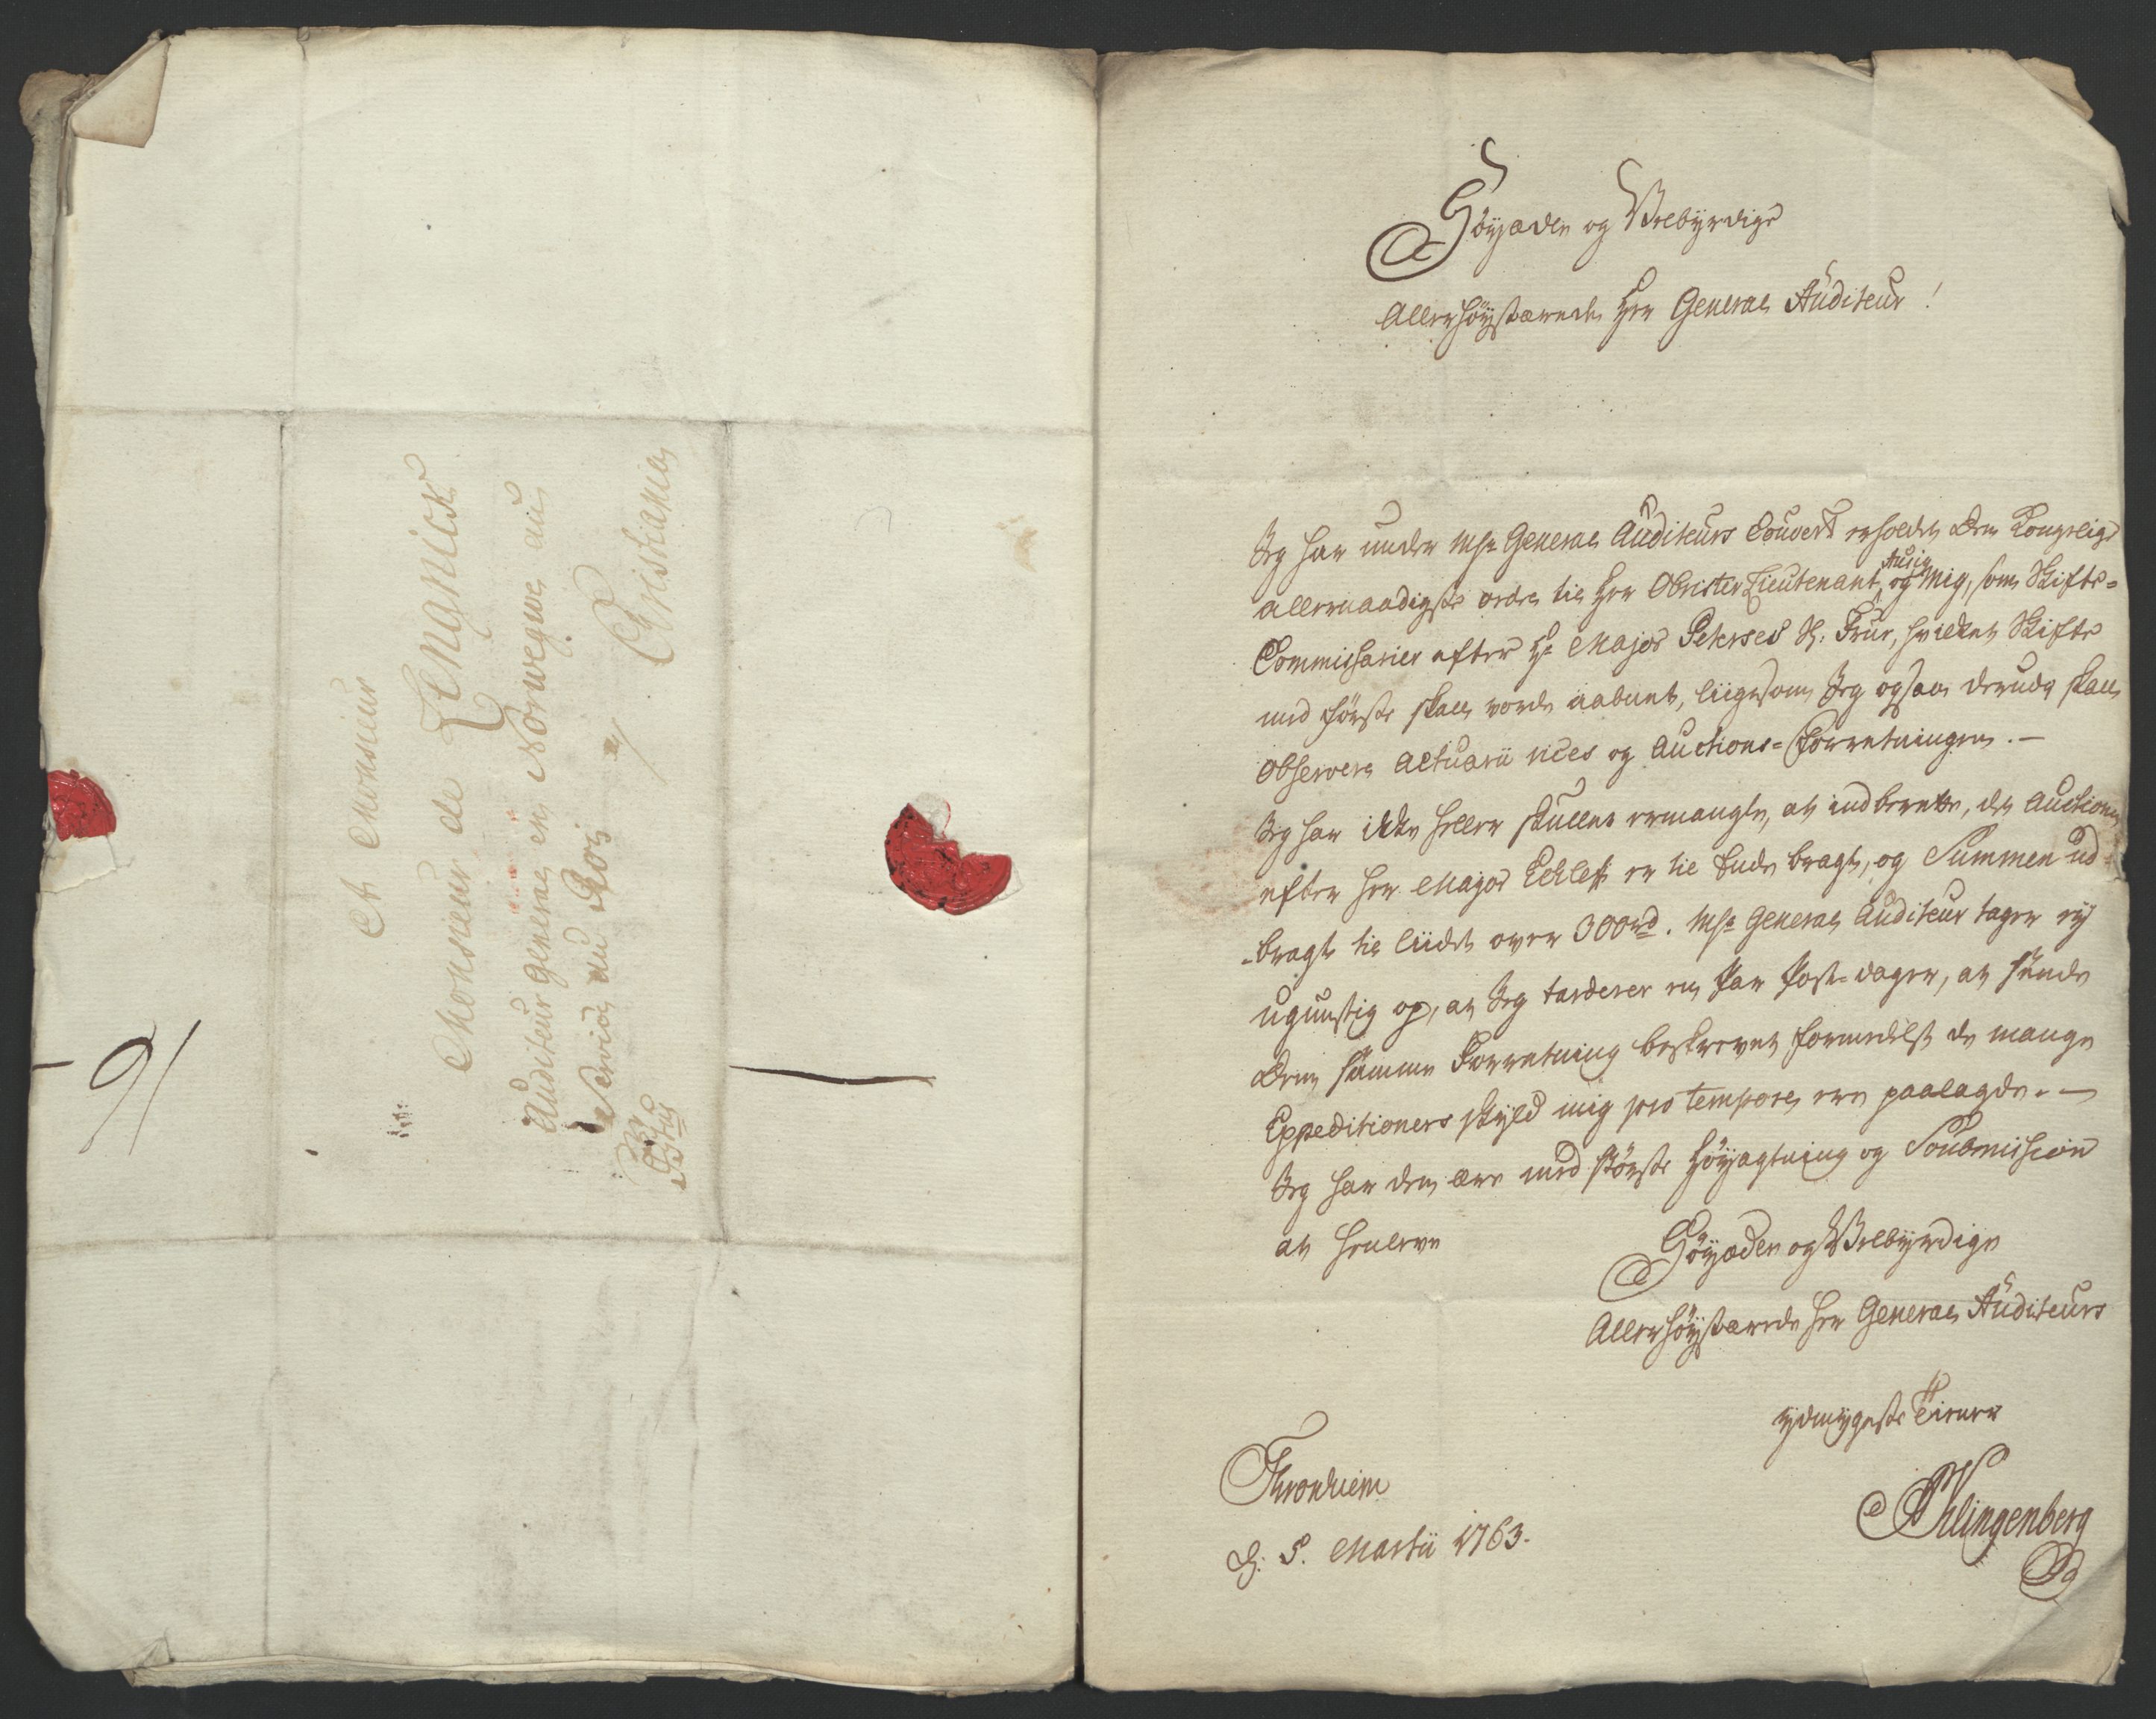 A Monsieur
Monsieur de Lengnick
Auditeur General en Norwegue au
Service du Roi
Christiania
91
Höyædle og Velbyrdige
Allerhöystærede Hr General Auditeur!
Jeg har under Mhr General Auditeurs Couvert erholdet den Kongelige
allernaadigste ordre til Hr Obrister Lieutenant og Mig, som Skifte-
Commissarier efter Hr Major Peterses Frue, hvilket Skifte
med första skall vorde aabnet, liigesom Jeg ogsaa derudj skall
Observere Actuarii vices og Auctions-Forretningen. –
Jeg har ikke heller skullet ermangle, at indberette, det Auctionen
efter Hr Major Ecklef er til Ende bragt, og Summen ud-
-bragt til liidet over 300rd. Mhr General Auditeur tager ej
ugunstig op, at Jeg tarderer en Par Post-dager, at sende
den samme Forretning beskrevet formedelst de mange
Expeditioners skyld mig pro tempore ere paalagde. –
Jeg har den ære med störste Höyagtning og Soubmission
at henleve
Höyædle og Velbyrdige
Allerhöystærede Hr General Auditeurs
ydmygeste Tiener
Klingenberg
Thronhiem
d: 5. Martii 1763.